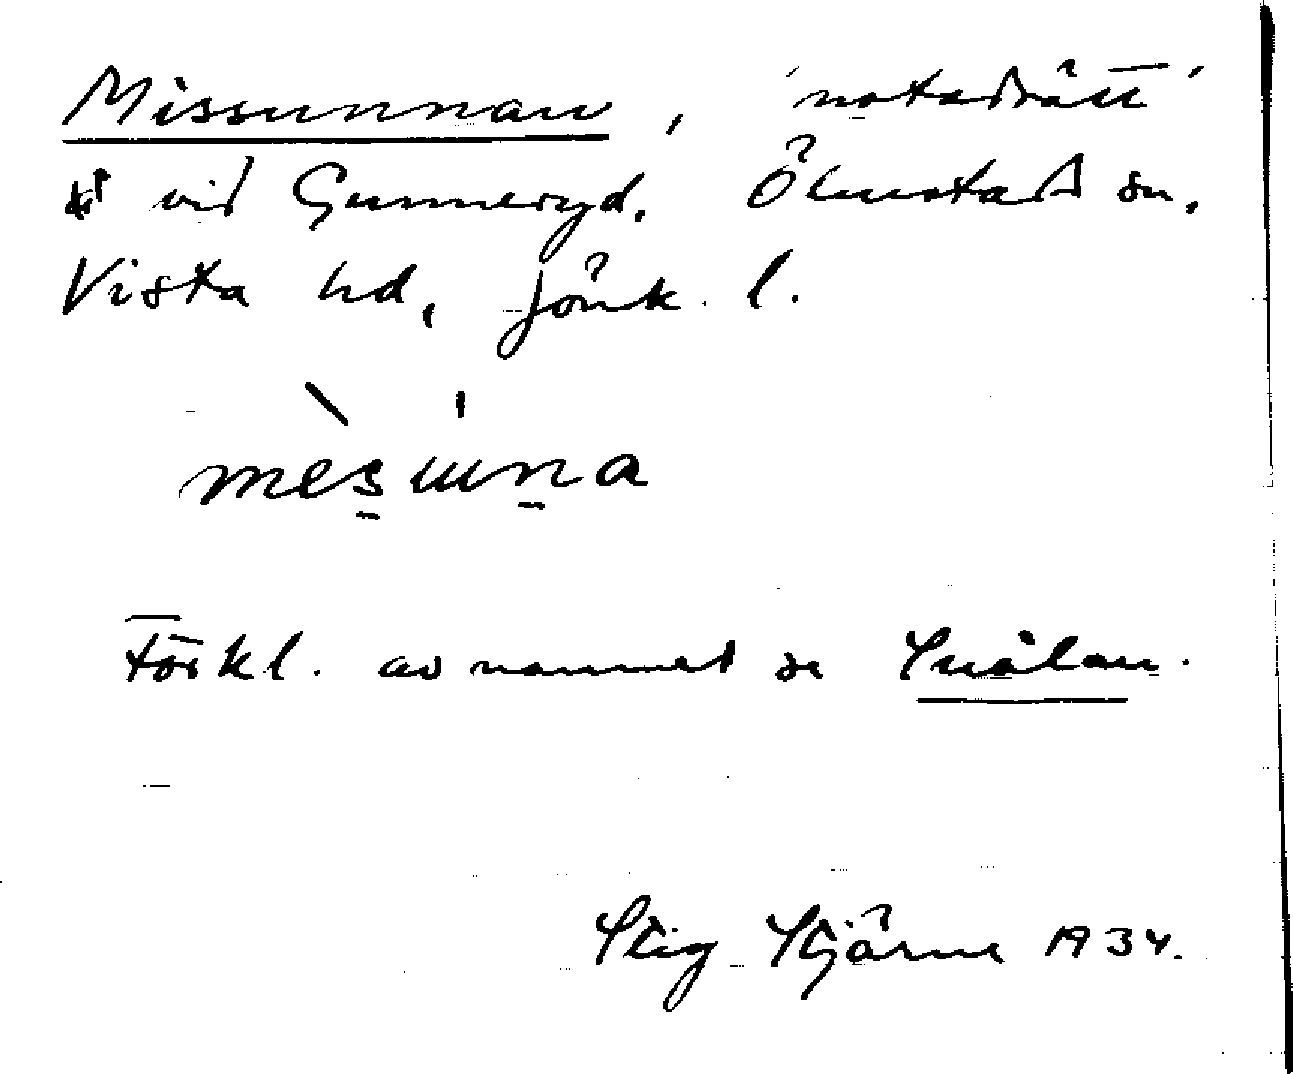 Missunnan, 'notadrätt'
vid Gunneryd. Ölmstad sn,
Vista hd, Jönk. l.
mèsuna
Förkl. av namnet se Snålan.
Stig Stjärne 1934.